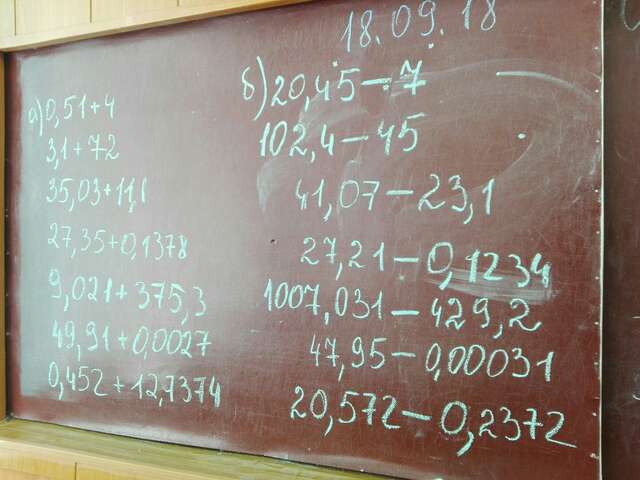 18.09.18
а) 0,51+4
3,1+72
35,03+11,1
27,35+0,1378
9,021+375,3
49,91+0,0027
0,452+12,7374
б) 20,45-7
102,4-45
41,07-23,1
27,21-0,1234
1007,031-429,2
47,95-0,00031
20,572-0,2372